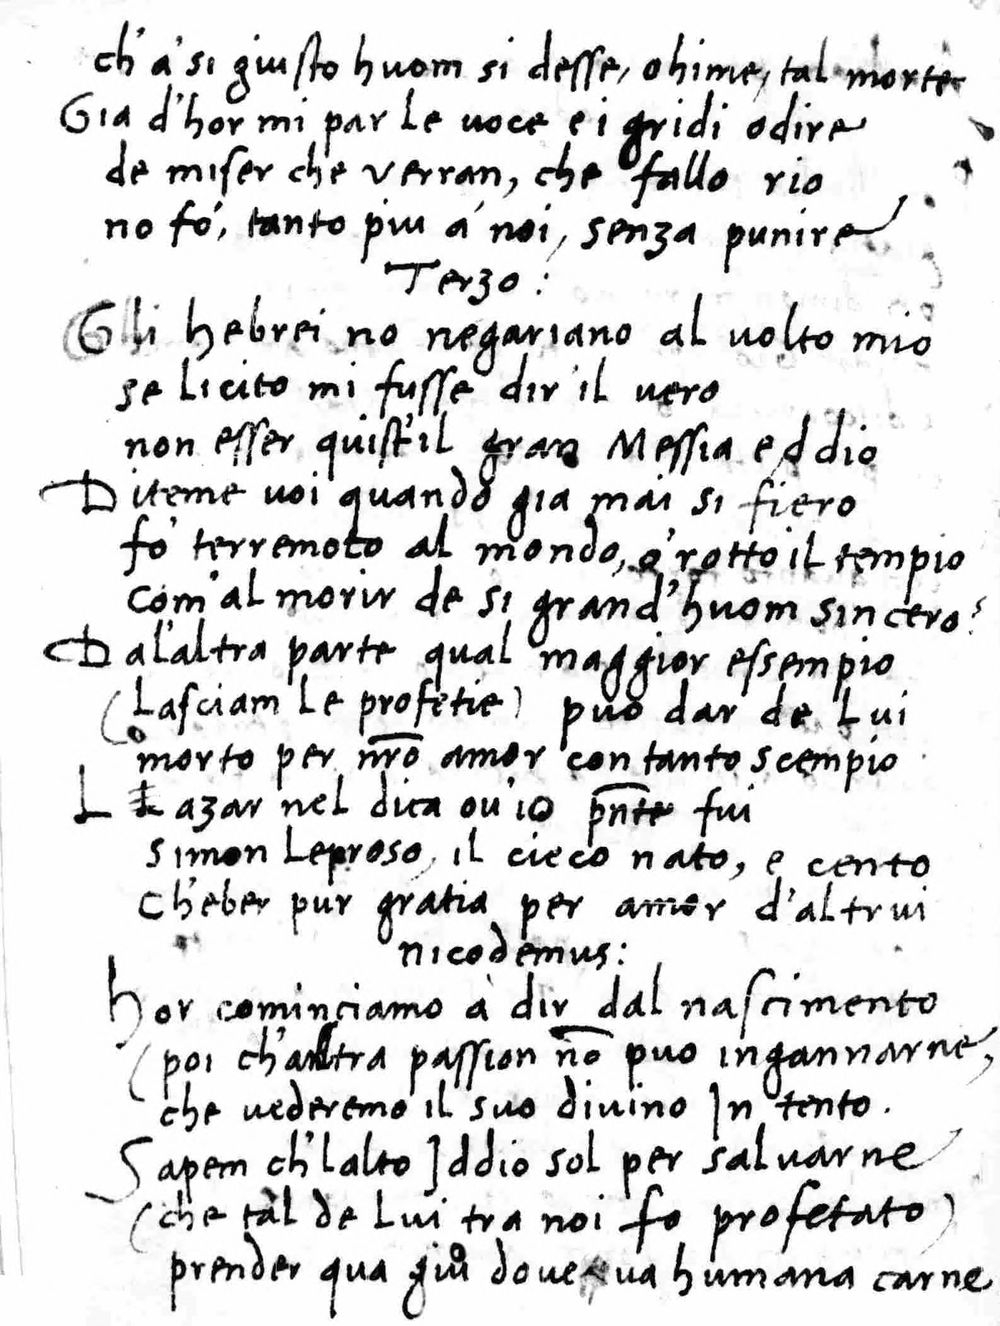 ch'a' si giusto huom si desse, ohime, tal morte
Gia d'hor mi par le uoce e i gridi odire
de miser che verran, che fallo rio
no fo', tanto piu a' noi, senza punire
Terzo:
Gli hebrei no negariano al uolto mio
se licito mi fusse dir'il uero
non esser quist'il gran Messia e d dio
Diteme uoi quando gia mai si fiero
fo' terremoto al mondo, o' rotto il tempio
com'al morir de si grand'huom sincero?
Dal'altra parte qual maggior essempio
(Lasciam le profetie) puo dar de lui
morto per nr̅o amor con tanto scempio
Lazar nel dica ou'io pn̅te fui
Simon leproso, il cieco nato, e cento
ch'eber pur gratia per amor d'altrui
Nicodemus:
Hor cominciamo à dir dal nascimento
(poi ch'altra passion no̅ puo ingannarne,
che uederemo il suo diuino Intento.
Sapem ch'lalto Iddio sol per saluarne
(che tàl de lui tra noi fo profetato)
prender qua giu doueua humana carne